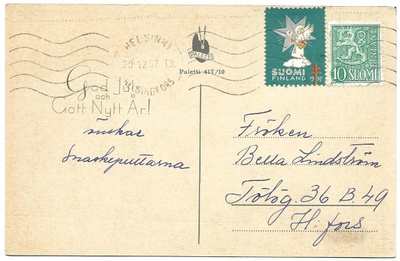 HELSINKI
20.12.57.13
HELSINGFORS
God Jul
och
Gott Nytt År!
önskar
Snaskeputtarna
PALETTI
Paletti 417/10
SUOMI
FINLAND
10 SUOMI
FINLAND
Fröken
Bella Lindström
Tölög. 36 B. 49
H:fors